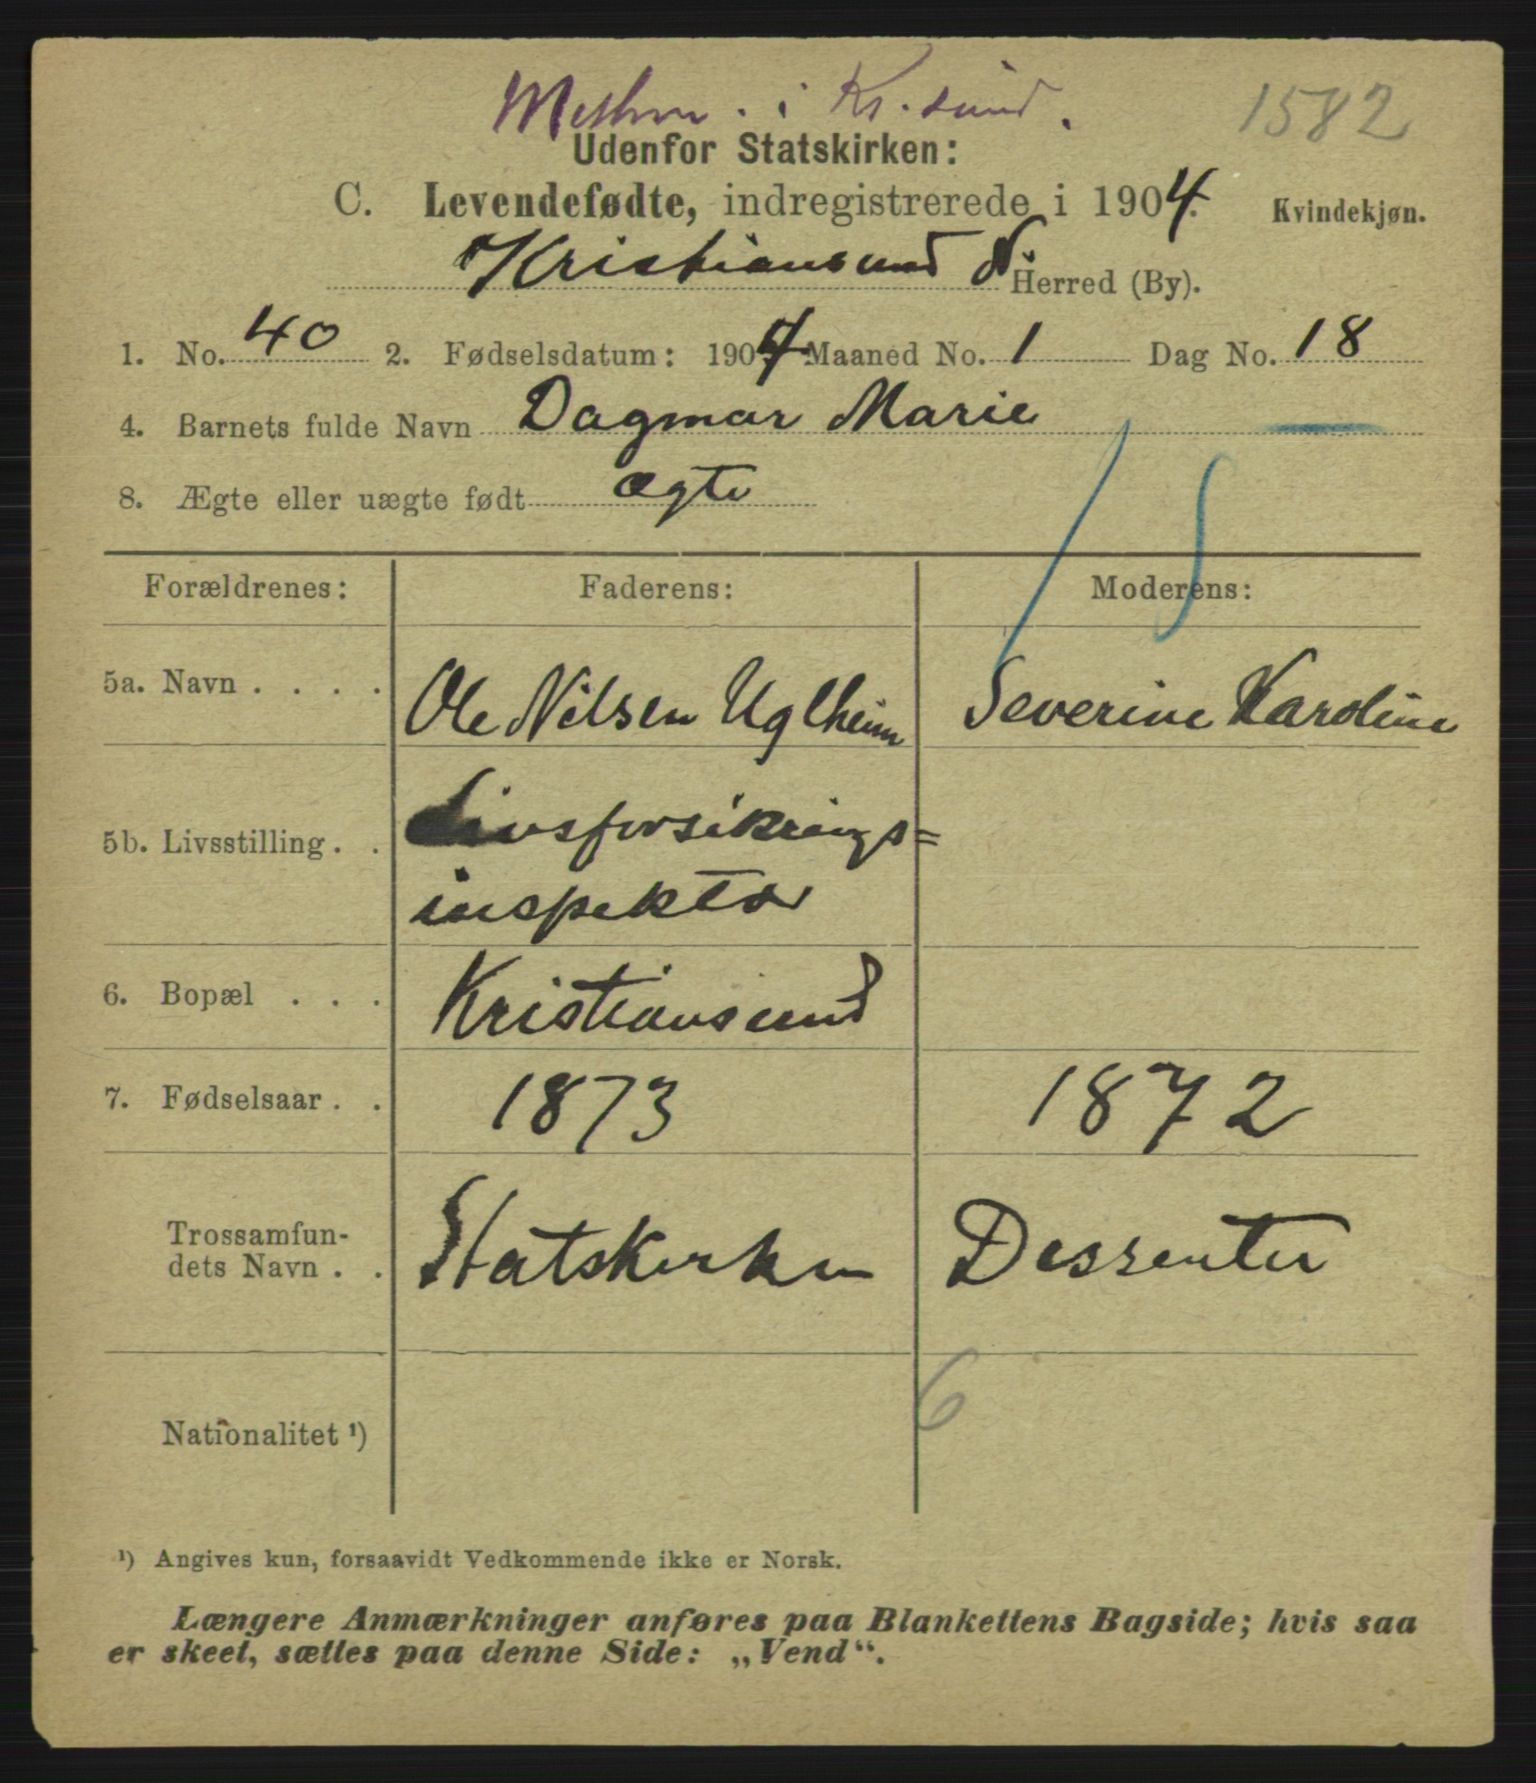 i Kr.sund.
1582
Udenfor Statskirken:
C. Levendefødte, indregistrerede i 1904. Kvindekjøn.
Kristiansund N. Herred (By).
1. No. 40 2. Fødselsdatum: 1904 Maaned No. 1 Dag No. 18
4. Barnets fulde Navn Dagmar Marie
8. Ægte eller uægte født ægte
Forældrenes: Faderens: Moderens:
5a. Navn . . . . Ole Nilsen Uglheim Severine Karoline
5b. Livsstilling . . Livsforsikrings=
inspektør
6. Bopæl . . . Kristiansund
7. Fødselsaar . . 1873 1872
Trossamfun-
dets Navn . . Statskirken Dissenter
6
Nationalitet ¹)
¹) Angives kun, forsaavidt Vedkommende ikke er Norsk.
Længere Anmærkninger anføres paa Blankettens Bagside; hvis saa
er skeet, sættes paa denne Side: „Vend“.